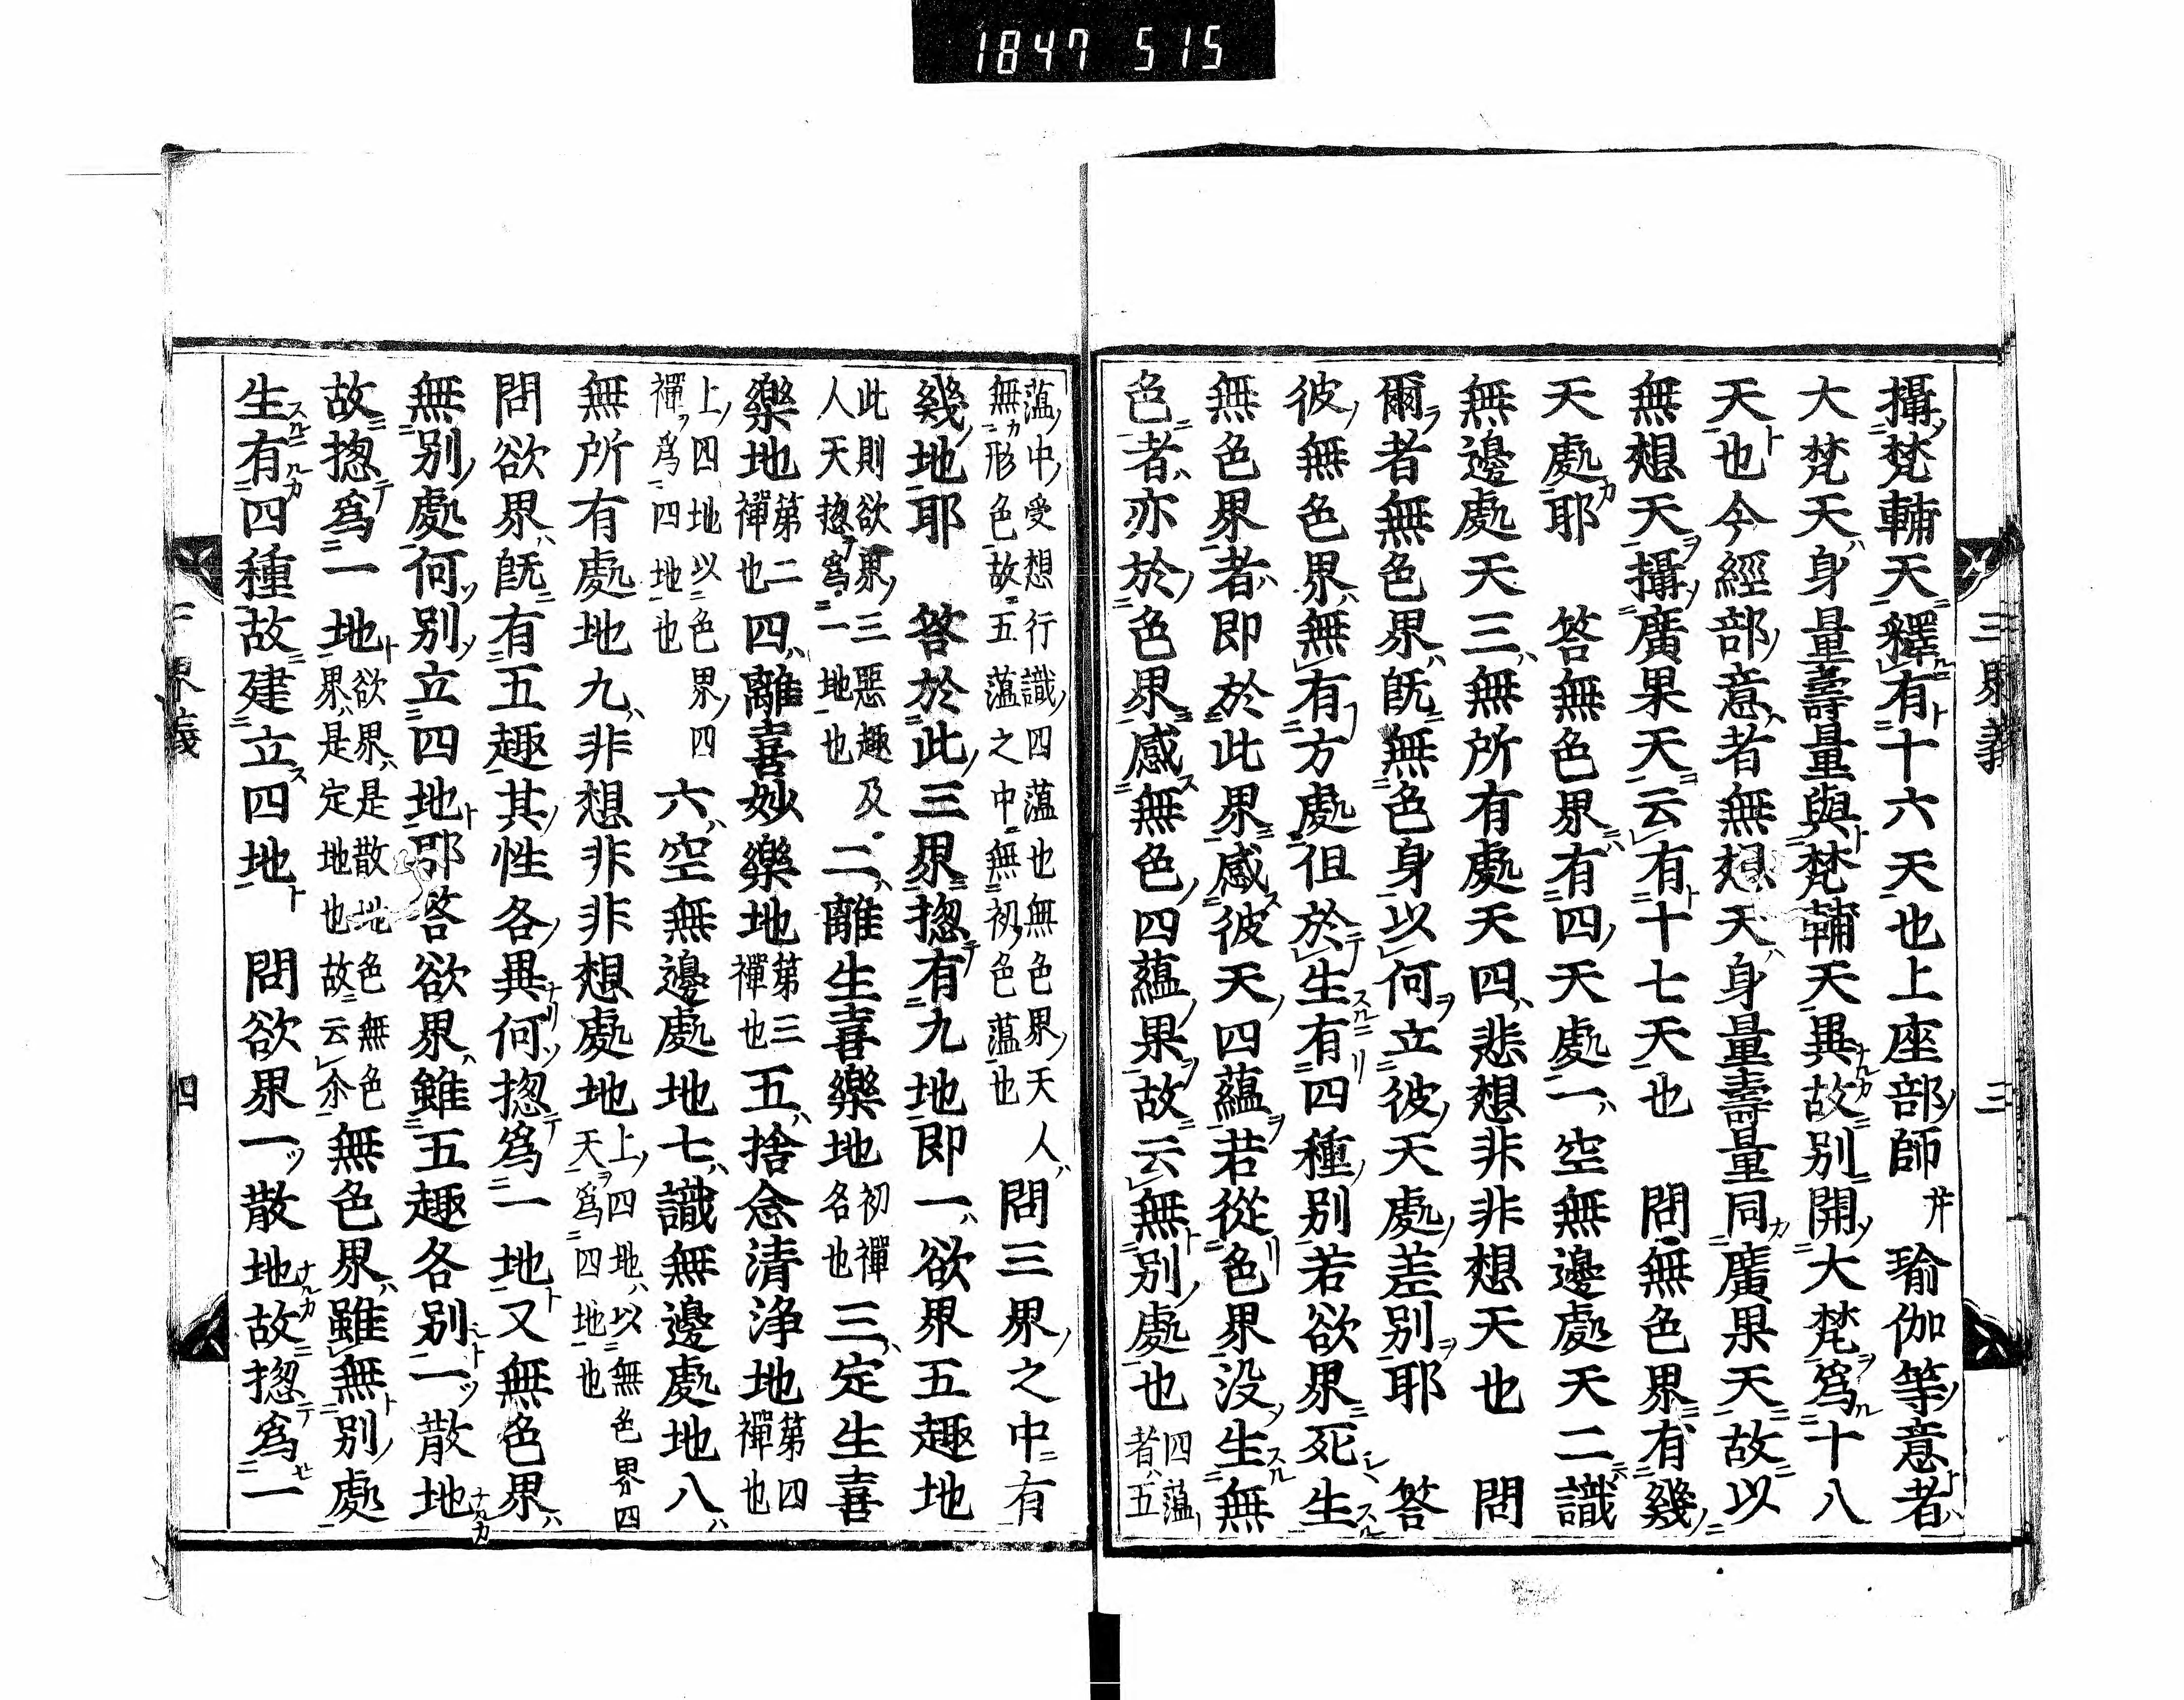 1847 515
三界義 三
攝梵輔天釋有十六天也上座部師并瑜伽等意者
大梵天身量壽量與梵輔天異故別開大梵爲十八
天也今經部意者無想天身量壽量同廣果天故以
無想天攝廣果天云有十七天也 問無色界有幾
天處耶 答無色界有四天處一空無邊處天二識
無邊處天三無所有處天四悲想非非想天也 問
爾者無色界既無色身以何立彼天處差別耶 答
彼無色界無有方處但於生有四種別若欲界死生
無色界者即於此界感彼天四蘊若從色界没生無
色者亦於色界感無色四蘊果故云無別處也四蕰者五
蕰中受想行識四蕰也無色界天人無形色故五蕰之中無初色蕰也 問三界之中有
幾地耶 答於此三界揔有九地即一欲界五趣地
此則欲界三惡趣及人天揔爲一地也 二離生喜樂地初禪名也 三定生喜
樂地第二禪也 四離喜妙樂地第三禪也 五捨念清浄地第四禪也
上四地以色界四禪爲四地也 六空無邊處地七識無邊處地八
無所有處地九非想非非想處地上四地以無色界四天爲四地也
問欲界既有五趣其性各異何揔爲一地又無色界
無別處何別立四地耶答欲界雖五趣各別一散地
故揔爲一地欲界是散地色無色界是定地也故云尒無色界雖無別處
生有四種故建立四地 問欲界一散地故揔爲一
三界義 四